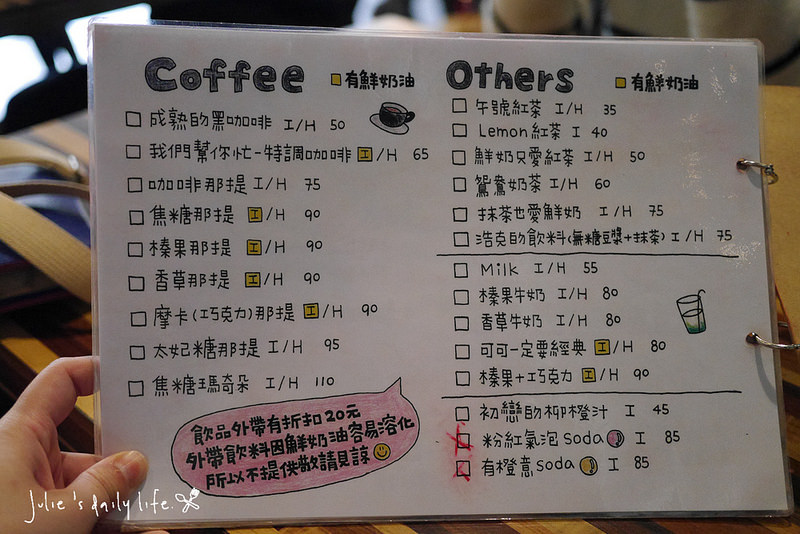 Coffee 有鮮奶油
成熟的黑咖啡 I/H 50
我們幫你忙-特調咖啡 I/H 65
咖啡那提 I/H 75
焦糖那提 I/H 90
榛果那提 I/H 90
香草那提 I/H 90
摩卡(巧克力)那提 I/H 90
太妃糖那提 I/H 95
焦糖瑪奇朵 I/H 110
飲品外帶有折扣20元
外帶飲料因鮮奶油容易溶化
所以不提供敬請見諒
Others 有鮮奶油
午號紅茶 I/H 35
Lemon紅茶 I 40
鮮奶只愛紅茶 I/H 50
鴛鴦奶茶 I/H 60
抹茶也愛鮮奶 I/H 75
浩克的飲料(無糖豆漿+抹茶) I/H 75
Milk I/H 55
榛果牛奶 I/H 80
香草牛奶 I/H 80
可可一定要經典 I/H 80
榛果+巧克力 I/H 90
初戀的柳橙汁 I 45
粉紅氣泡soda I 85
有橙意soda I 85
Julie's daily life.